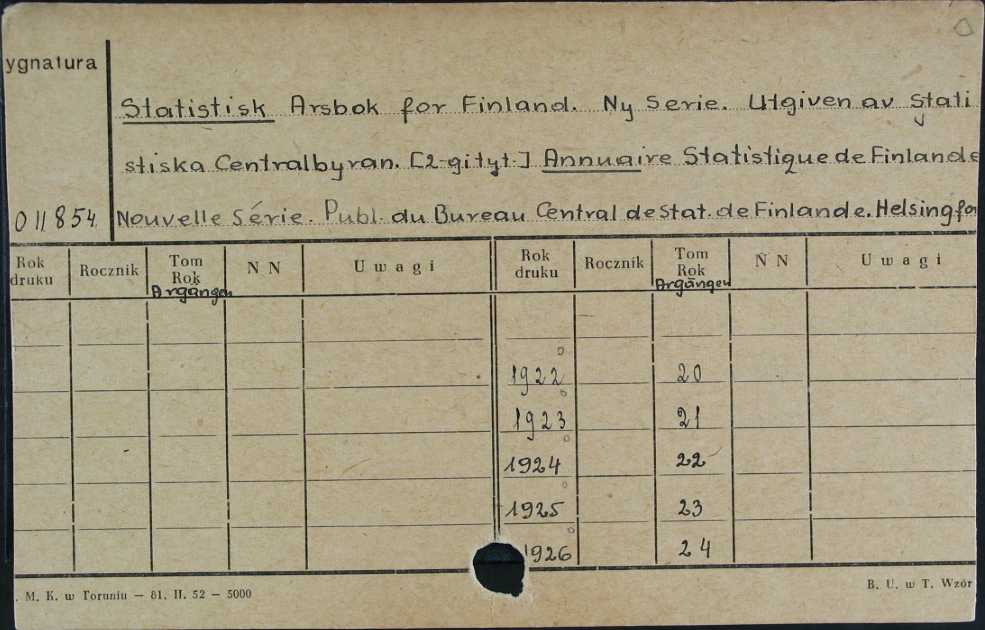 ygnatura
Statistisk Arsbok for Finland. Ny Serie. Utgiven av Stati
stiska Centralbyran. [2-gi tyt.] Annuaire Statistique de Finlande
011854 Nouvelle Série. Publ. du Bureau Central de Stat. de Finlande. Helsingfor
Rok druku Rocznik Tom Rok Argangen N N Uwagi Rok druku Rocznik Tom Rok Argangen N N Uwagi
1922 20
1923 21
1924 22
1925 23
1926 24
. M. K. w Toruniu — 81. II. 52 — 5000 B. U. w T. Wzór